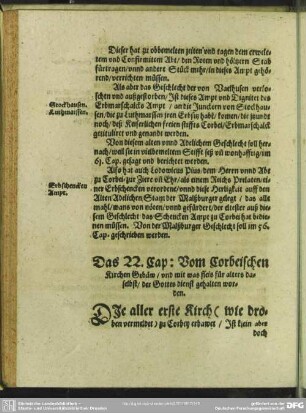 Dieser hat zu obbemelten zeiten vnd tagen dem erwele-
tem vnd Confirmirten Abt / den Roten vnd höltzern Stab
fürtragen / vnnd andere Stück mehr / in dieses Ampt gehö-
rend / verrichten müssen.
Als aber das Geschlecht der von Vaelhusen verlo-
schen vnd außgestorben / Ist dieses Ampt vnd Dignitet des
Erbmarschalcks Ampt / an die Junckern von Stockhau-
sen / die zu Luthmarssen jren Erbsitz habē / komen / die jtzundt
noch / deß Keyserlichen freien stiffts Corbei / Erbmarschalck
getituliret vnd genandt werden.
Stockhausen.
Luthmarssen.
Von diesem alten vnnd Adelichen Geschlecht soll her-
nach / weil sie in vielbemeltem Stifft seßhafftig / im
61. Cap. gesagt vnd berichtet werden.
Also hat auch Lodovicus Pius dem Herrn vnnd Abt
zu Corbei zur Ziere vñ Ehr / als einem Reichs Prelaten / ei-
ner Erbschencken verordent / vnnd diese Herligkeit auff den
Alten Adelichen Stam der Malßburger gelegt / das allt
Erbschencken
Ampt.
mahl / wans von nöten / vnnd gefürdert / der eltester auß die-
sem Geschlecht das Schencken Ampt zu Corbei hat bedie-
nen müssen. Von der Malßburger Geschlecht soll im 56.
Cap. geschrieben werden.
Das 22. Cap: Vom Corbeischen
Kirchen Gebäw / vnd mit was fleis für alters da-
selbst / der Gottes dienst gehalten wor-
den.
DJe aller erste Kirch (wie dro-
ben vermeldet) zu Corbey erbawet / Ist klein aber
doch